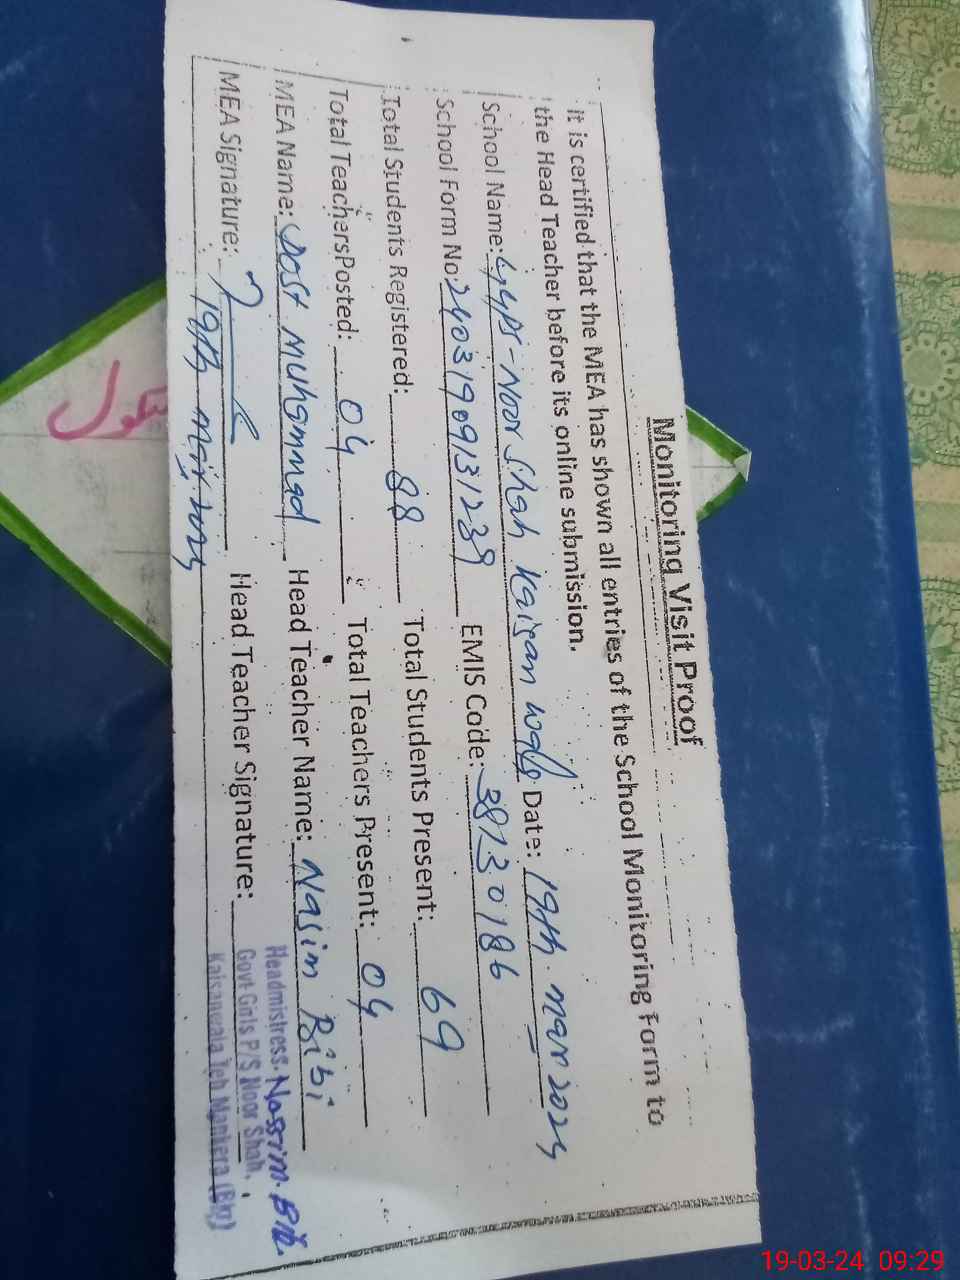 Monitoring Visit Proof
It is certified that the MEA has shown all entries of the School Monitoring Form to
the Head Teacher before its online submission.
School Name: GGPS-Noor Shah Kaisan wala Date: 19th mar 2024
School Form No: 24031909131239 EMIS Code: 38130186
Total Students Registered: 88 Total Students Present: 69
Total Teachers Posted: 04 Total Teachers Present: 04
MEA Name: Dost Muhammad Head Teacher Name: Nasim Bibi
MEA Signature: Head Teacher Signature:
19th mar, 2024
Headmistress. Nassim. Bibi.
Govt Girls P/S Noor Shah,
Kaisanwala Teh Mankera (Bkr)
سکول
19-03-24 09:29